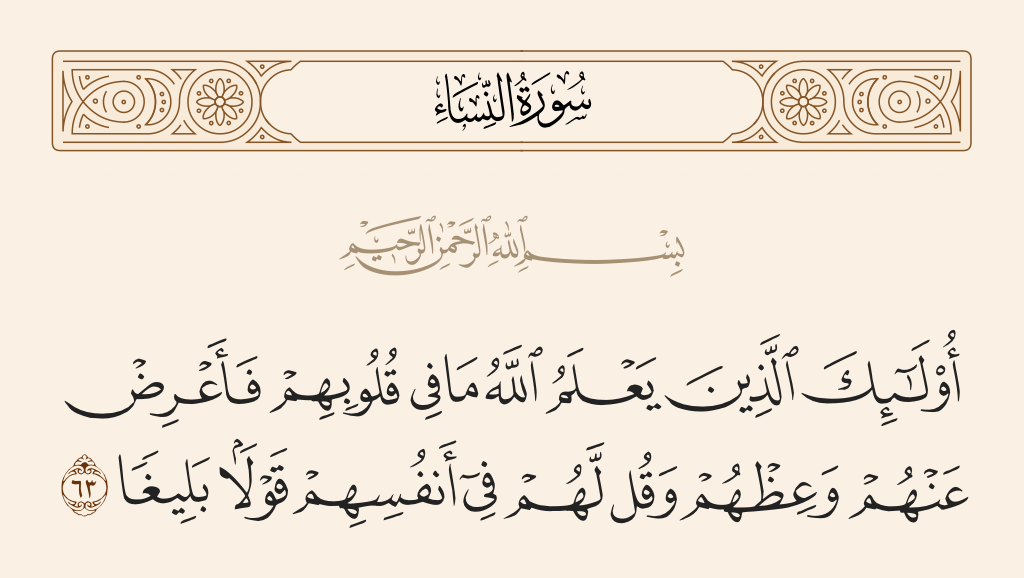 سُورَةُ النِّسَاءِ
بِسْمِ ٱللَّهِ ٱلرَّحْمَٰنِ ٱلرَّحِيمِ
أُوْلَـٰٓئِكَ ٱلَّذِينَ يَعْلَمُ ٱللَّهُ مَا فِي قُلُوبِهِمْ فَأَعْرِضْ
عَنْهُمْ وَعِظْهُمْ وَقُل لَّهُمْ فِيٓ أَنفُسِهِمْ قَوْلَۢا بَلِيغٗا ٦٣